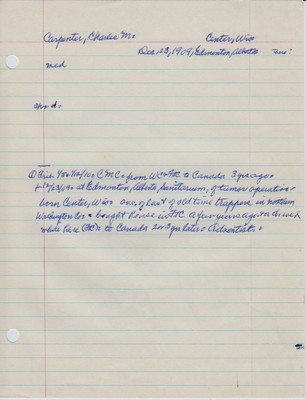 Carpenter, Charles M. Center, Wisc
Dec, 23, 1909, Edmonton, Alberta
med
ch: d:
① Frid. C M C. from W C & F C to Canada 3 yrs ago
+ 12/23/09 at Edmonton, Alberta, Sanitarium, of tumor operation
born Center, Wisc one of last of old time trappers in northern
Washington Co. & bought house in F C a few years ago & lived
to Canada 2 or 3 yrs later Adventist.